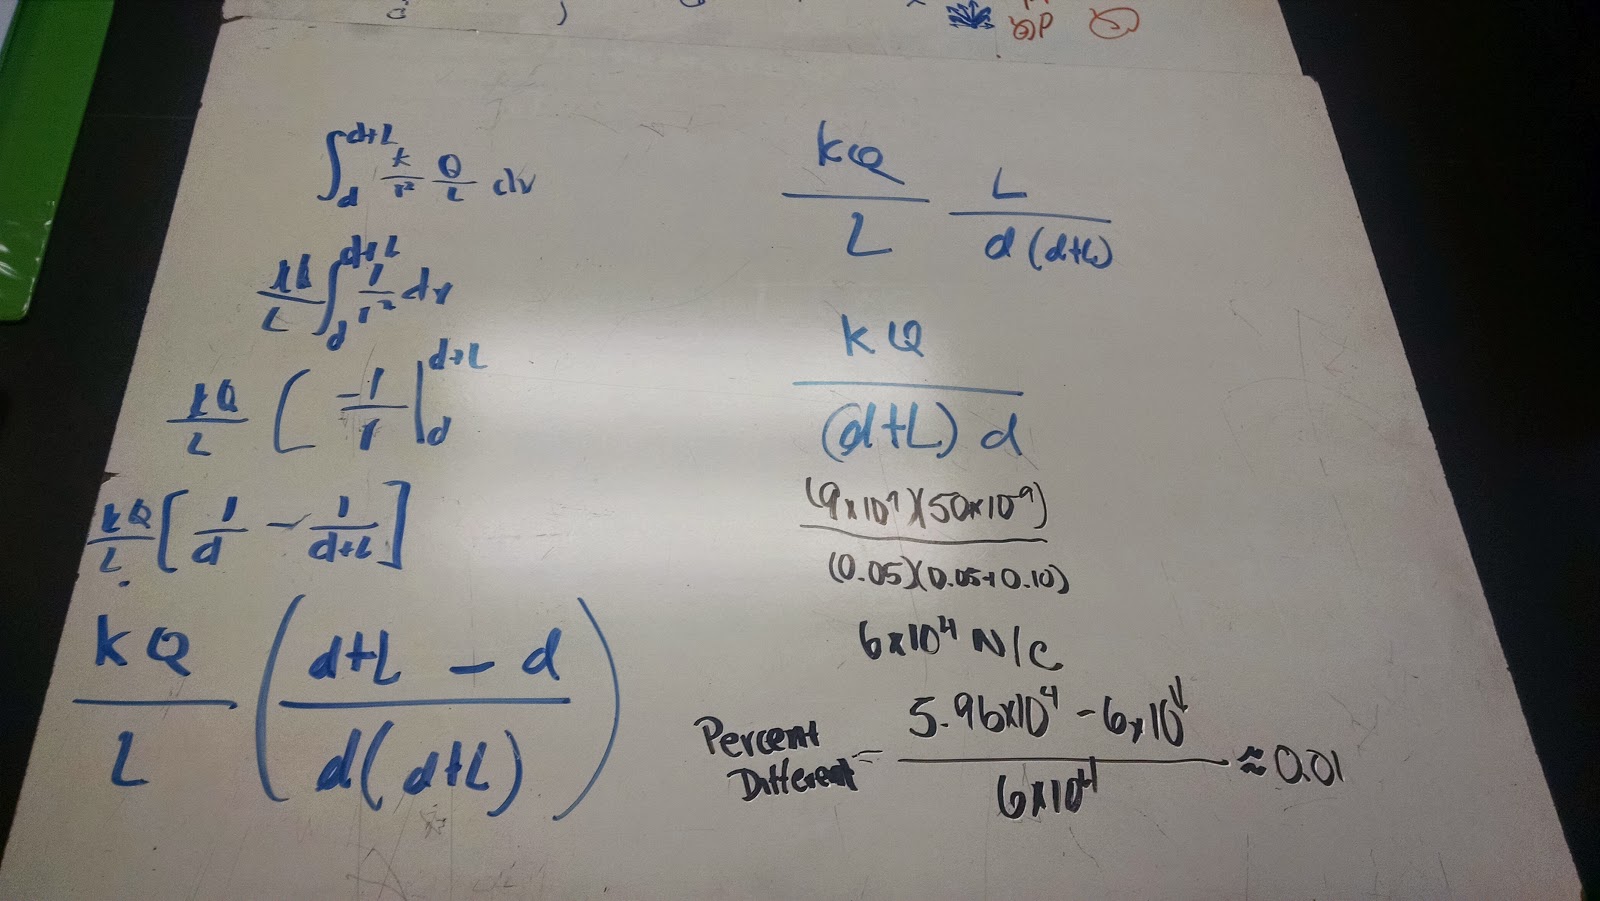 QP
∫_d^{d+L} k/r² Q/L dr
kQ/L ∫_d^{d+L} 1/r² dr
kQ/L [ -1/r |_d^{d+L}
kQ/L [ 1/d - 1/(d+L) ]
kQ/L ( (d+L - d)/(d(d+L)) )
kQ/L L/(d(d+L))
kQ/((d+L) d)
(9x10⁹)(50x10⁻⁹)/((0.05)(0.05+0.10))
6x10⁴ N/C
Percent Different = (5.96x10⁴ - 6x10⁴)/(6x10⁴) ≈ 0.01